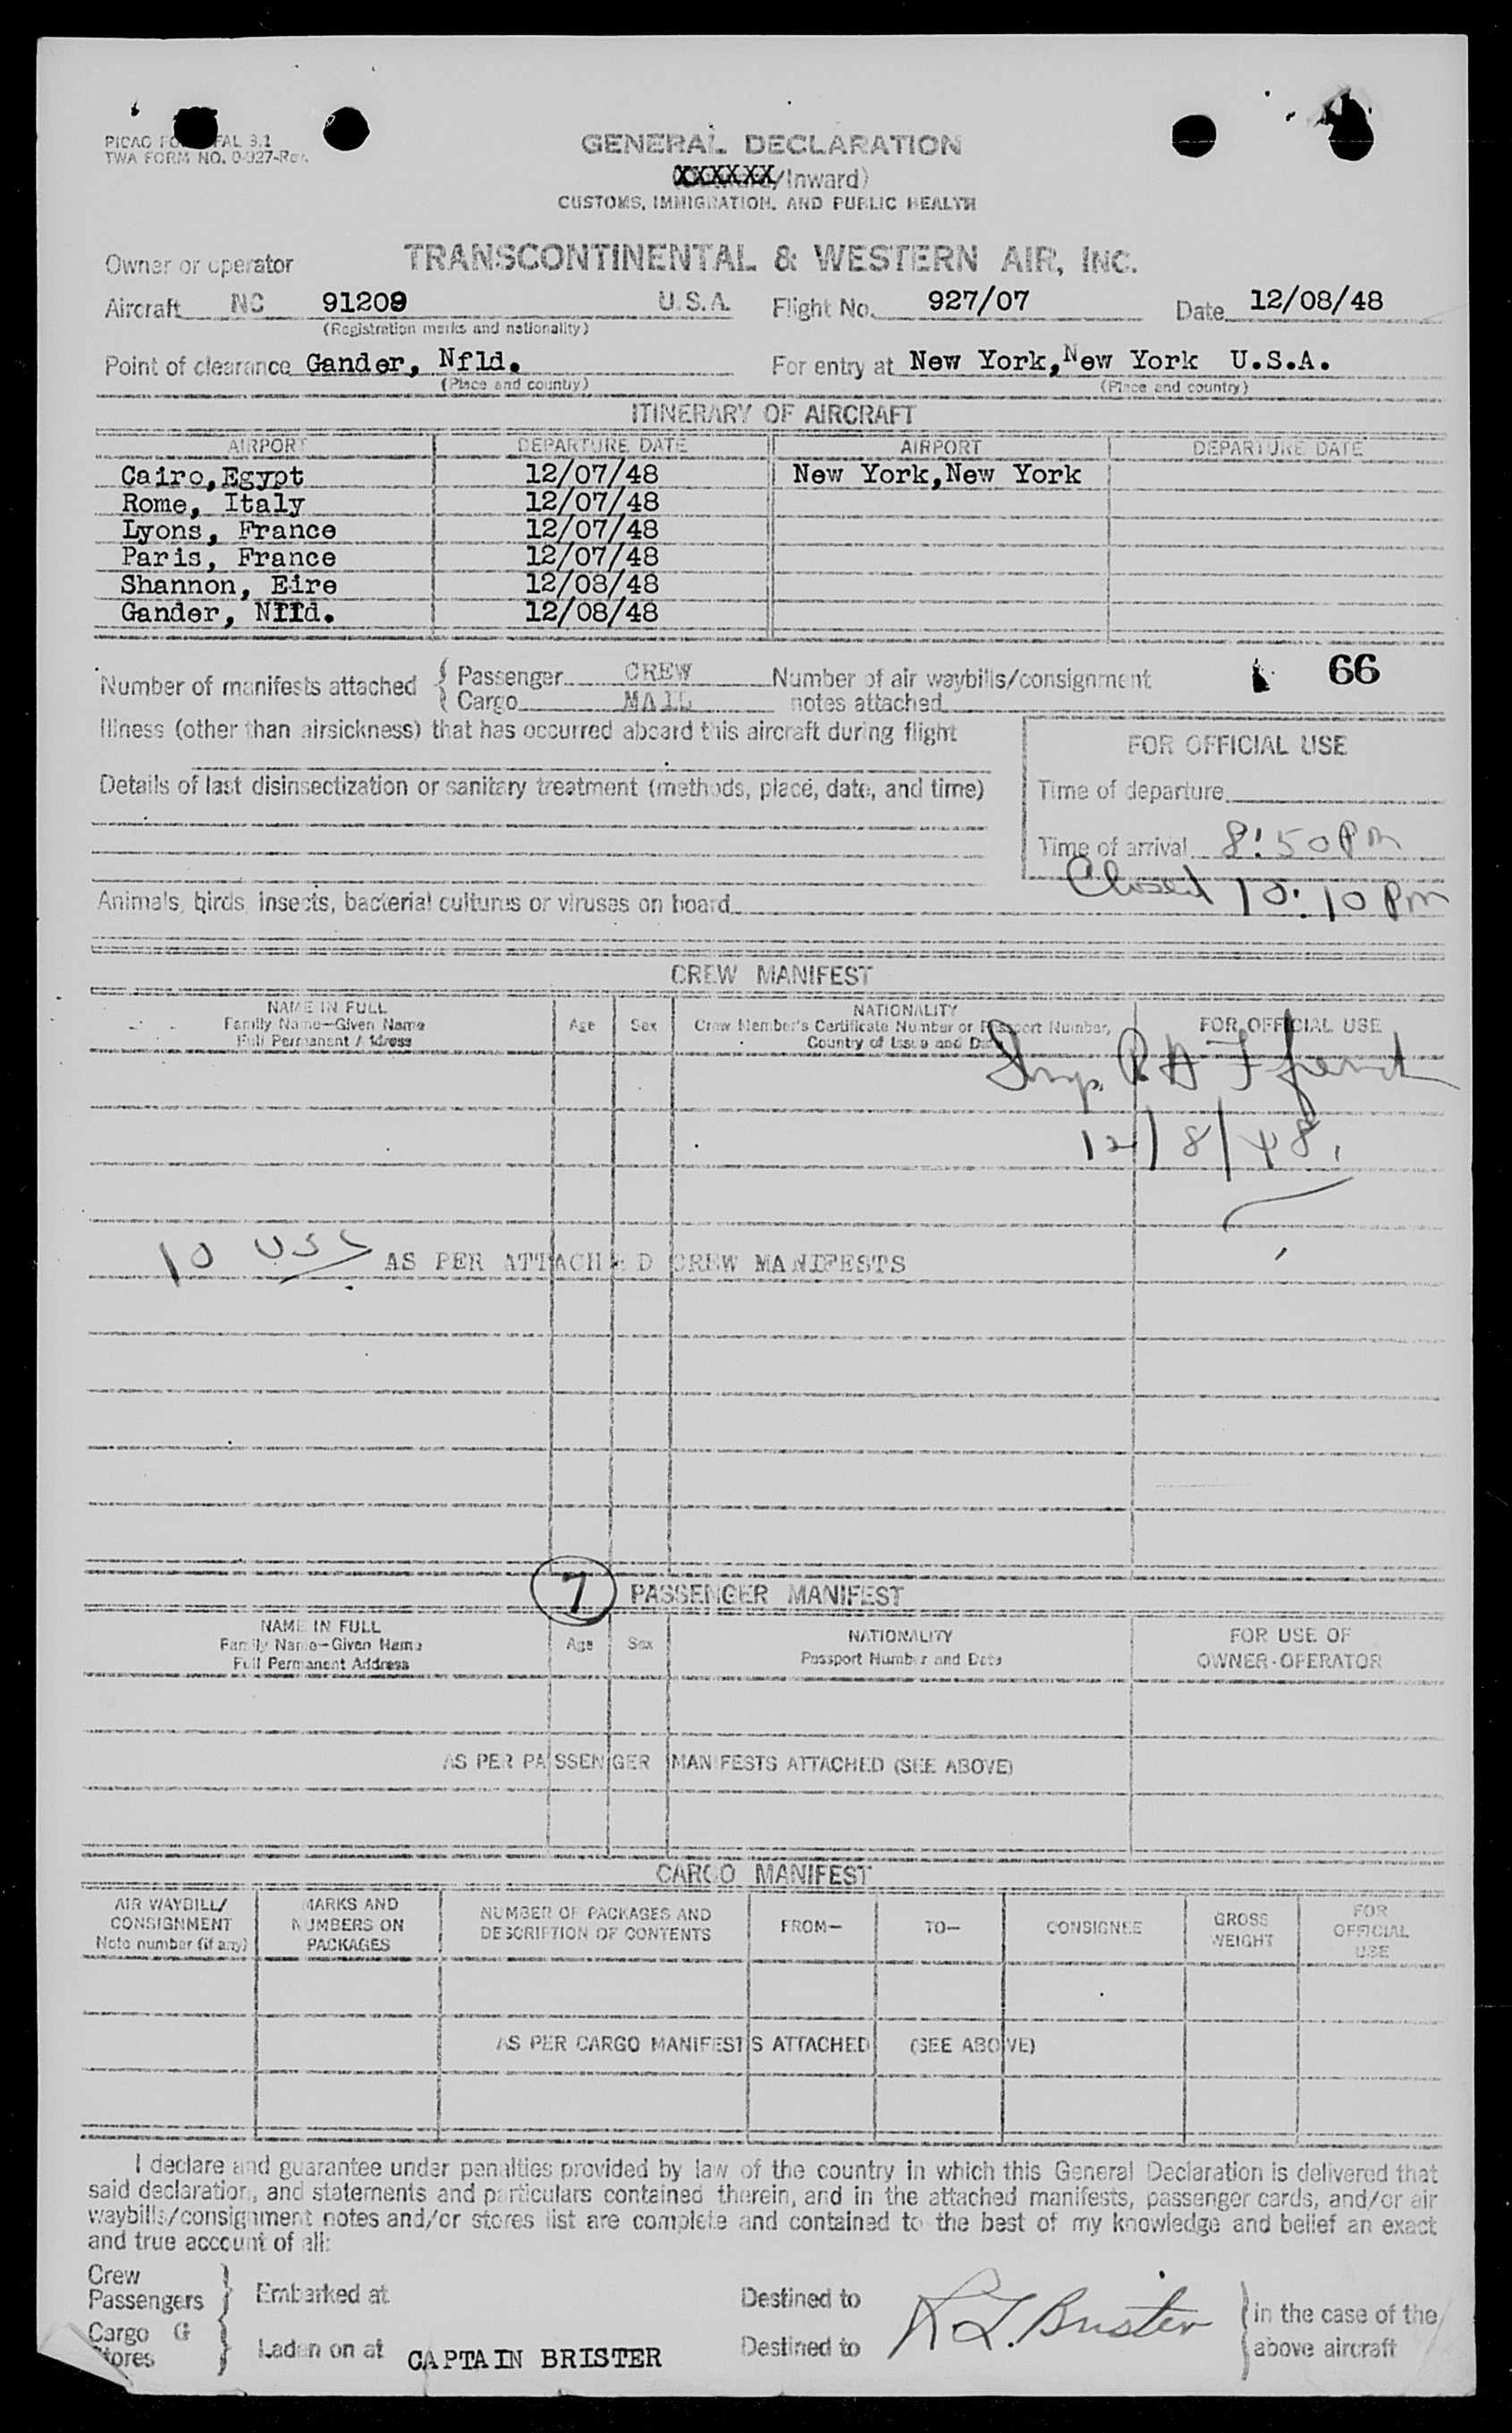 GENERAL DECLARATION
/Inward)
TWA FORM NO. 0-927-Rev.
CUSTOMS, IMMIGRATION, AND PUBLIC HEALTH
Owner or operator TRANSCONTINENTAL & WESTERN AIR, INC.
Aircraft NC 91209 U.S.A. Flight No. 927/07 Date 12/08/48
(Registration marks and nationality)
Point of clearance Gander, Nfld. For entry at New York, New York U.S.A.
(Place and country) (Place and country)
ITINERARY OF AIRCRAFT
AIRPORT DEPARTURE DATE AIRPORT DEPARTURE DATE
Cairo, Egypt 12/07/48 New York, New York
Rome, Italy 12/07/48
Lyons, France 12/07/48
Paris, France 12/07/48
Shannon, Eire 12/08/48
Gander, Nfld. 12/08/48
66
Number of manifests attached { Passenger CREW Number of air waybills/consignment
Cargo MAIL notes attached
Illness (other than airsickness) that has occurred aboard this aircraft during flight
FOR OFFICIAL USE
Details of last disinsectization or sanitary treatment (methods, place, date, and time)
Time of departure
Time of arrival 8:50 Pm
Closed 10:10 Pm
Animals, birds, insects, bacterial cultures or viruses on board
CREW MANIFEST
NAME IN FULL
Family Name—Given Name
Full Permanent Address
Age Sex
NATIONALITY
Crew Member's Certificate Number or Passport Number,
Country of Issue and Date
FOR OFFICIAL USE
Insp.
12/8/48.
10 USC AS PER ATTACHED CREW MANIFESTS
7 PASSENGER MANIFEST
NAME IN FULL
Family Name—Given Name
Full Permanent Address
Age Sex
NATIONALITY
Passport Number and Date
FOR USE OF
OWNER-OPERATOR
AS PER PASSENGER MANIFESTS ATTACHED (SEE ABOVE)
CARGO MANIFEST
AIR WAYBILL/
CONSIGNMENT
Note number (if any)
MARKS AND
NUMBERS ON
PACKAGES
NUMBER OF PACKAGES AND
DESCRIPTION OF CONTENTS
FROM— TO— CONSIGNEE
GROSS
WEIGHT
FOR
OFFICIAL
USE
AS PER CARGO MANIFESTS ATTACHED (SEE ABOVE)
I declare and guarantee under penalties provided by law of the country in which this General Declaration is delivered that
said declaration, and statements and particulars contained therein, and in the attached manifests, passenger cards, and/or air
waybills/consignment notes and/or stores list are complete and contained to the best of my knowledge and belief an exact
and true account of all:
Crew
Passengers } Embarked at Destined to
Cargo &
Stores } Laden on at CAPTAIN BRISTER Destined to
R L. Brister
{ in the case of the
above aircraft